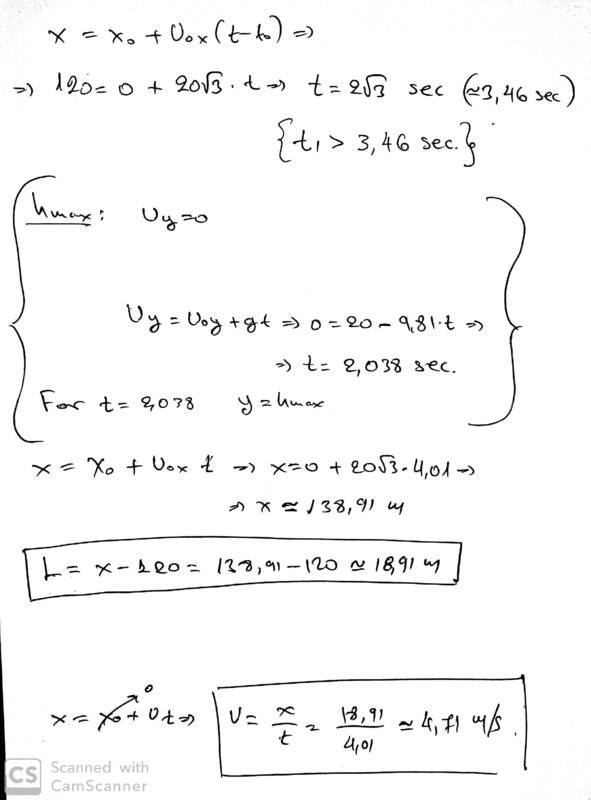 x = x₀ + U₀ₓ(t-t₀) ⇒
⇒ 120 = 0 + 20√3 · t ⇒ t = 2√3 sec (≈3,46 sec)
{t₁ > 3,46 sec.}
hmax: Uy=0
Uy = U₀y + gt ⇒ 0 = 20 - 9,81·t ⇒
⇒ t = 2,038 sec.
For t = 2,038 y = hmax
x = x₀ + U₀ₓ t ⇒ x=0 + 20√3 · 4,01 ⇒
⇒ x ≃ 138,91 m
L = x - 120 = 138,91 - 120 ≃ 18,91 m
x = x₀ + Ut ⇒ U = x/t = 18,91/4,01 ≃ 4,71 m/s.
0
CS Scanned with
CamScanner